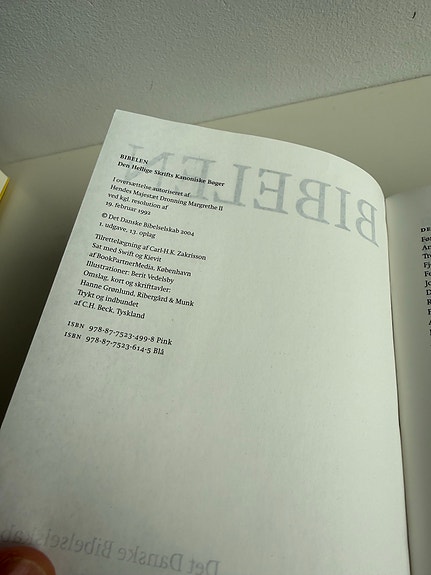 BIBELEN
Den Hellige Skrifts Kanoniske Bøger
I oversættelse autoriseret af
Hendes Majestæt Dronning Margrethe II
ved kgl. resolution af
19. februar 1992
© Det Danske Bibelselskab 2004
1. udgave, 13. oplag
Tilrettelægning af Carl-H.K. Zakrisson
Sat med Swift og Kievit
af BookPartnerMedia, København
Illustrationer: Berit Vedelsby
Omslag, kort og skrifttavler:
Hanne Grønlund, Ribergård & Munk
Trykt og indbundet
af C.H. Beck, Tyskland
ISBN 978-87-7523-499-8 Pink
ISBN 978-87-7523-614-5 Blå
BIBELEN
Det Danske Bibelselskab